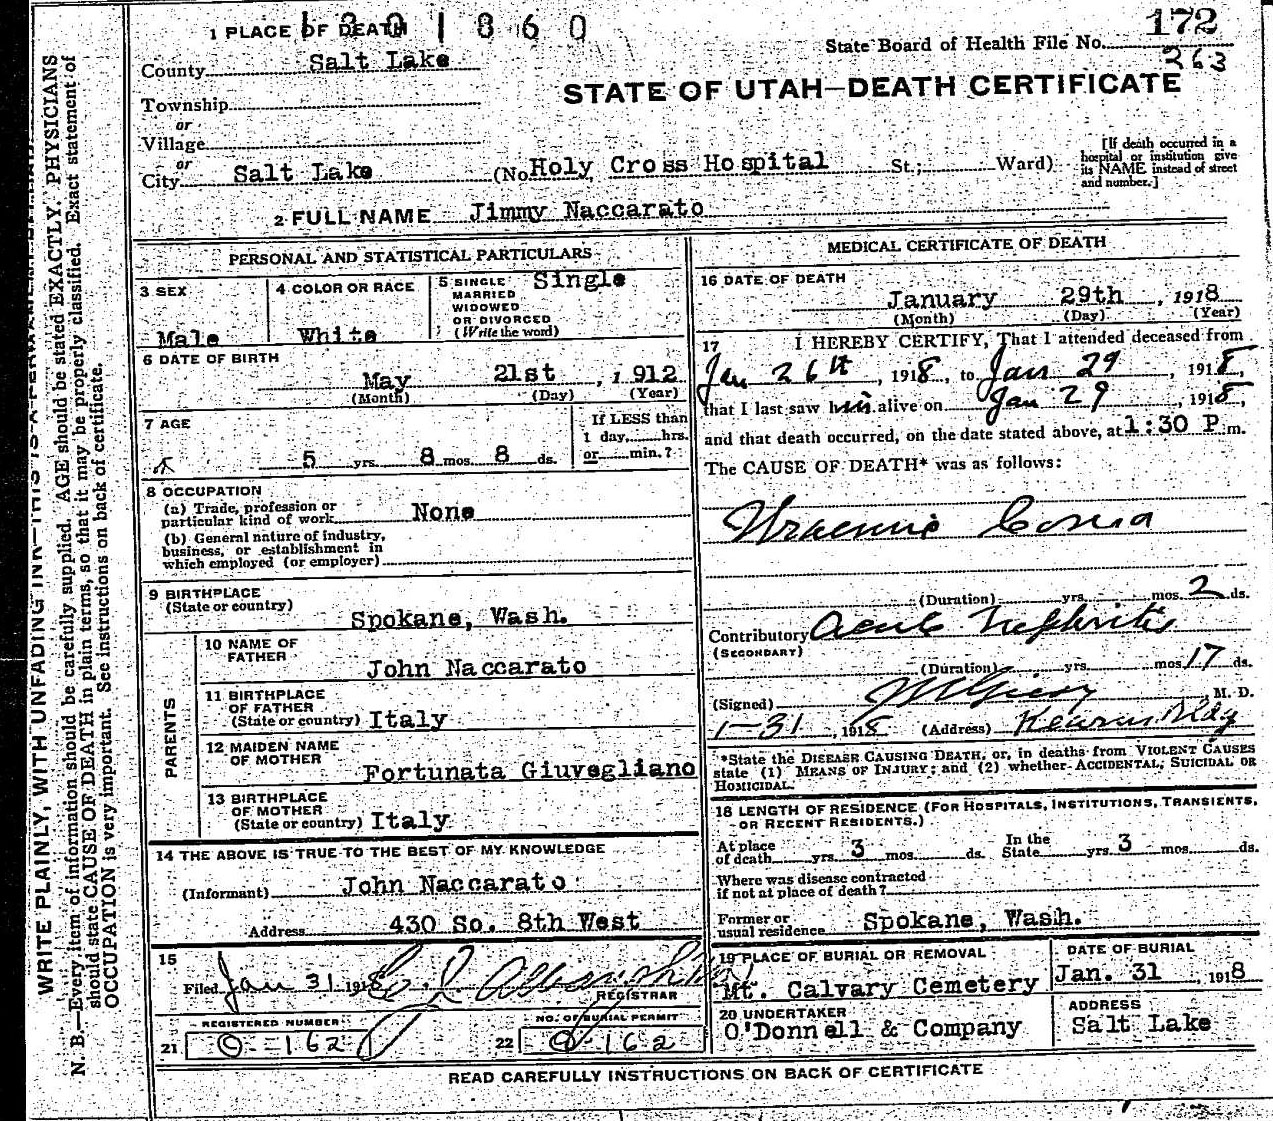 1 PLACE OF DEATH 1301860
State Board of Health File No. 172
263
County Salt Lake
STATE OF UTAH—DEATH CERTIFICATE
Township
or
Village
or
City Salt Lake (No Holy Cross Hospital St.; Ward)
[If death occurred in a
hospital or institution give
its NAME instead of street
and number.]
2 FULL NAME Jimmy Naccarato
PERSONAL AND STATISTICAL PARTICULARS
3 SEX
Male
4 COLOR OR RACE
White
5 SINGLE
MARRIED
WIDOWED
OR DIVORCED
(Write the word)
Single
6 DATE OF BIRTH
May 21st, 1912
(Month) (Day) (Year)
7 AGE
5 yrs. 8 mos. 8 ds.
If LESS than
1 day, hrs.
or min.?
8 OCCUPATION
(a) Trade, profession or
particular kind of work None
(b) General nature of industry,
business, or establishment in
which employed (or employer)
9 BIRTHPLACE
(State or country)
Spokane, Wash.
PARENTS
10 NAME OF
FATHER
John Naccarato
11 BIRTHPLACE
OF FATHER
(State or country) Italy
12 MAIDEN NAME
OF MOTHER
Fortunata Giuvegliano
13 BIRTHPLACE
OF MOTHER
(State or country) Italy
14 THE ABOVE IS TRUE TO THE BEST OF MY KNOWLEDGE
(Informant) John Naccarato
Address 430 So. 8th West
15
Filed Jan 31 1918
REGISTRAR
REGISTERED NUMBER
21 0-162
NO. OF BURIAL PERMIT
22 0-162
MEDICAL CERTIFICATE OF DEATH
16 DATE OF DEATH
January 29th, 1918
(Month) (Day) (Year)
17 I HEREBY CERTIFY, That I attended deceased from
Jan 26th, 1918, to Jan 29, 1918,
that I last saw him alive on Jan 29, 1918,
and that death occurred, on the date stated above, at 1:30 P.m.
The CAUSE OF DEATH* was as follows:
Uraemic Coma
(Duration) yrs. mos. 2 ds.
Contributory Acute Nephritis
(SECONDARY)
(Duration) yrs. mos. 17 ds.
(Signed) M. D.
1-31, 1918 (Address) Kearns Bldg
*State the DISEASE CAUSING DEATH, or, in deaths from VIOLENT CAUSES
state (1) MEANS OF INJURY; and (2) whether ACCIDENTAL, SUICIDAL OR
HOMICIDAL.
18 LENGTH OF RESIDENCE (FOR HOSPITALS, INSTITUTIONS, TRANSIENTS,
OR RECENT RESIDENTS.)
At place
of death yrs. 3 mos. ds.
In the
State yrs. 3 mos. ds.
Where was disease contracted
if not at place of death?
Former or
usual residence Spokane, Wash.
19 PLACE OF BURIAL OR REMOVAL
Mt. Calvary Cemetery
DATE OF BURIAL
Jan. 31, 1918
20 UNDERTAKER
O'Donnell & Company
ADDRESS
Salt Lake
READ CAREFULLY INSTRUCTIONS ON BACK OF CERTIFICATE
WRITE PLAINLY, WITH UNFADING INK—THIS IS A PERMANENT
N. B.—Every item of information should be carefully supplied. AGE should be stated EXACTLY. PHYSICIANS
should state CAUSE OF DEATH in plain terms, so that it may be properly classified. Exact statement of
OCCUPATION is very important. See instructions on back of certificate.